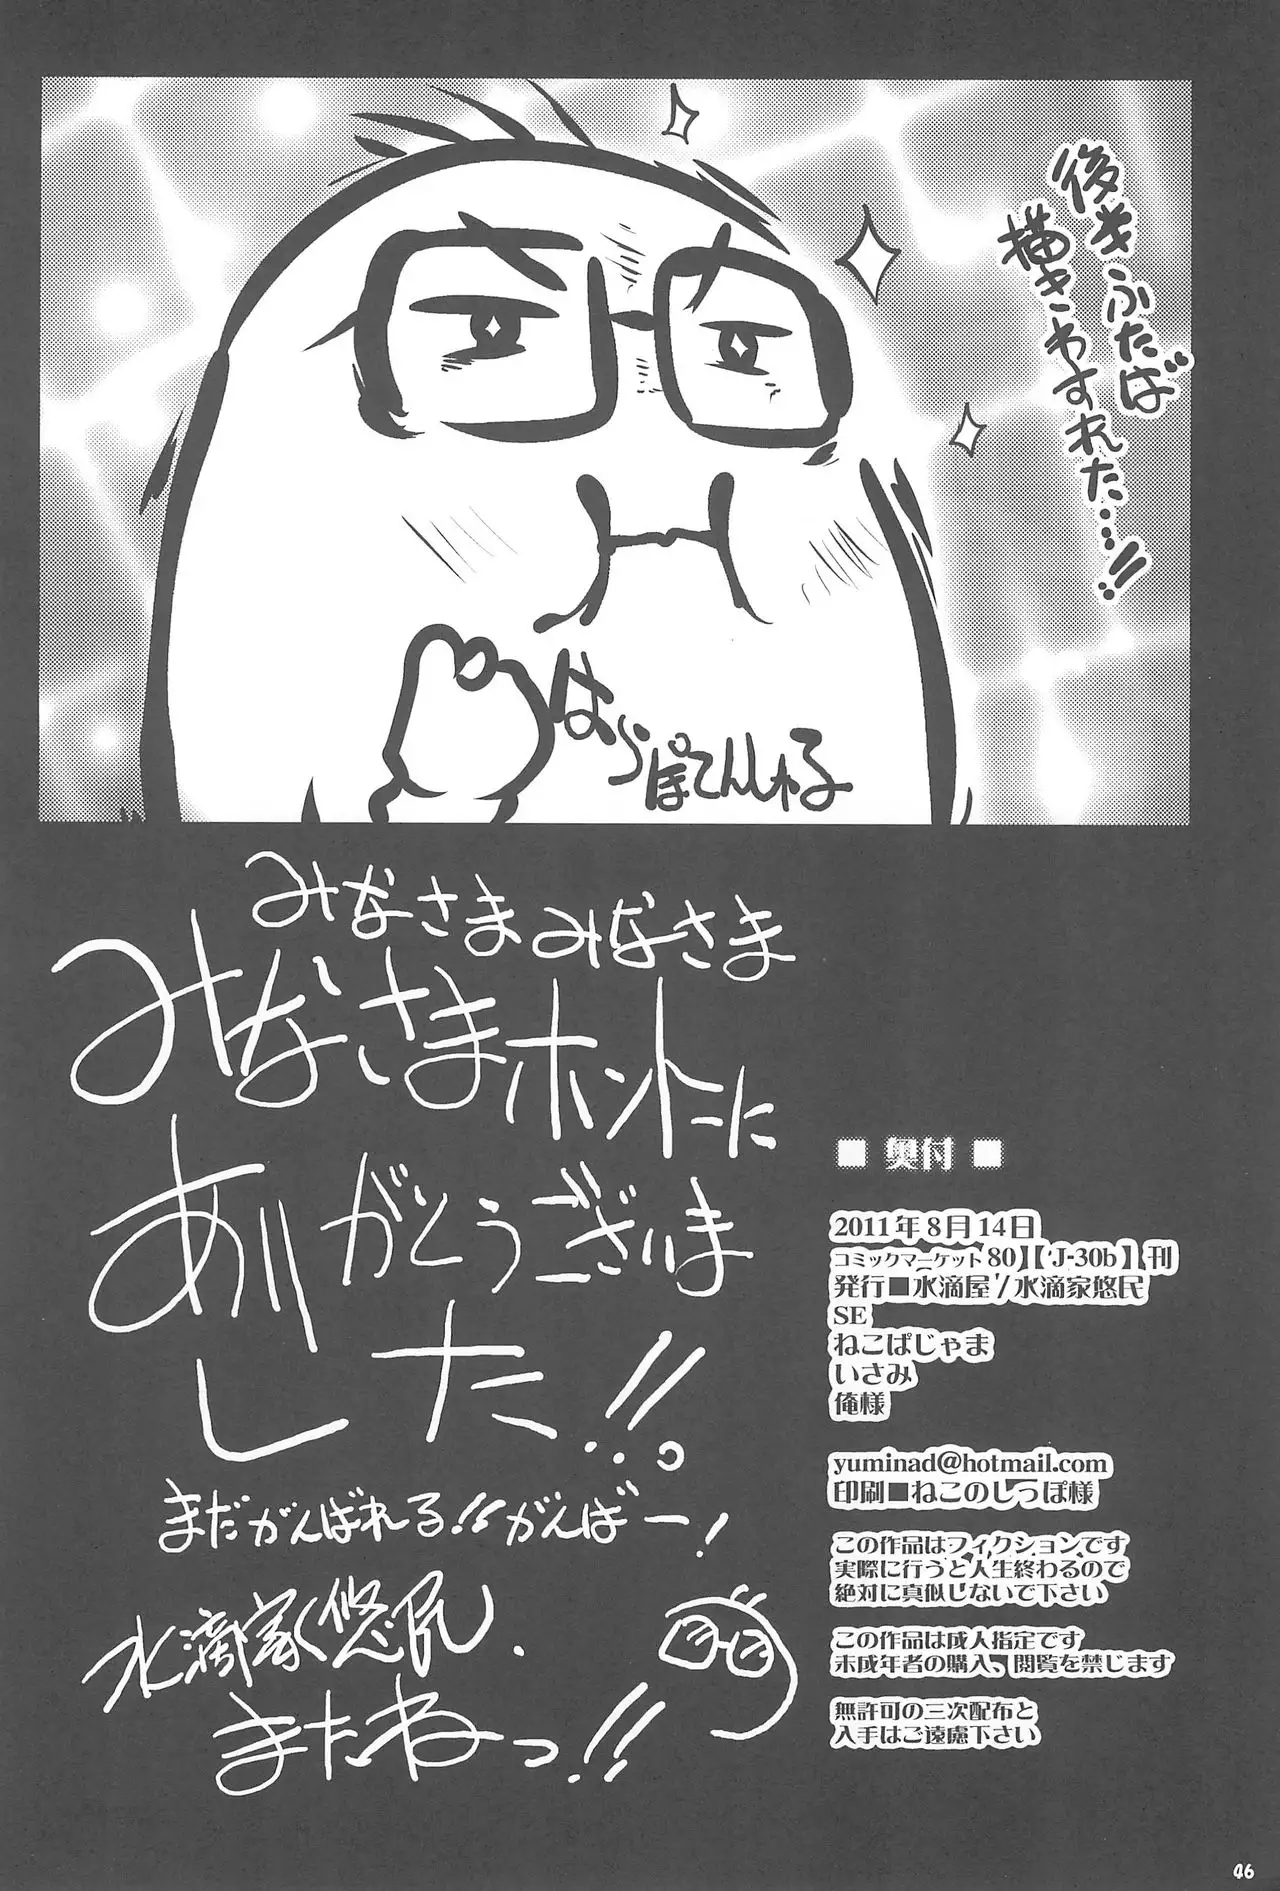 後半ふたば
描きわすれた…!!
はらぽてんしゃる
みなさまみなさま
みなさまホントーに
ありがとうございま
した!!。
まだがんばれる!!がんばー!
水滴家悠民、
またねっ!!
■ 奥付 ■
2011年8月14日
コミックマーケット80】【'J-30b】刊
発行■水滴屋'/水滴家悠民
SE
ねこぱじゃま
いさみ
俺様
yuminad@hotmail.com
印刷■ねこのしっぽ様
この作品はフィクションです
実際に行うと人生終わるので
絶対に真似しないで下さい
この作品は成人指定です
未成年者の購入、閲覧を禁じます
無許可の三次配布と
入手はご遠慮下さい
46